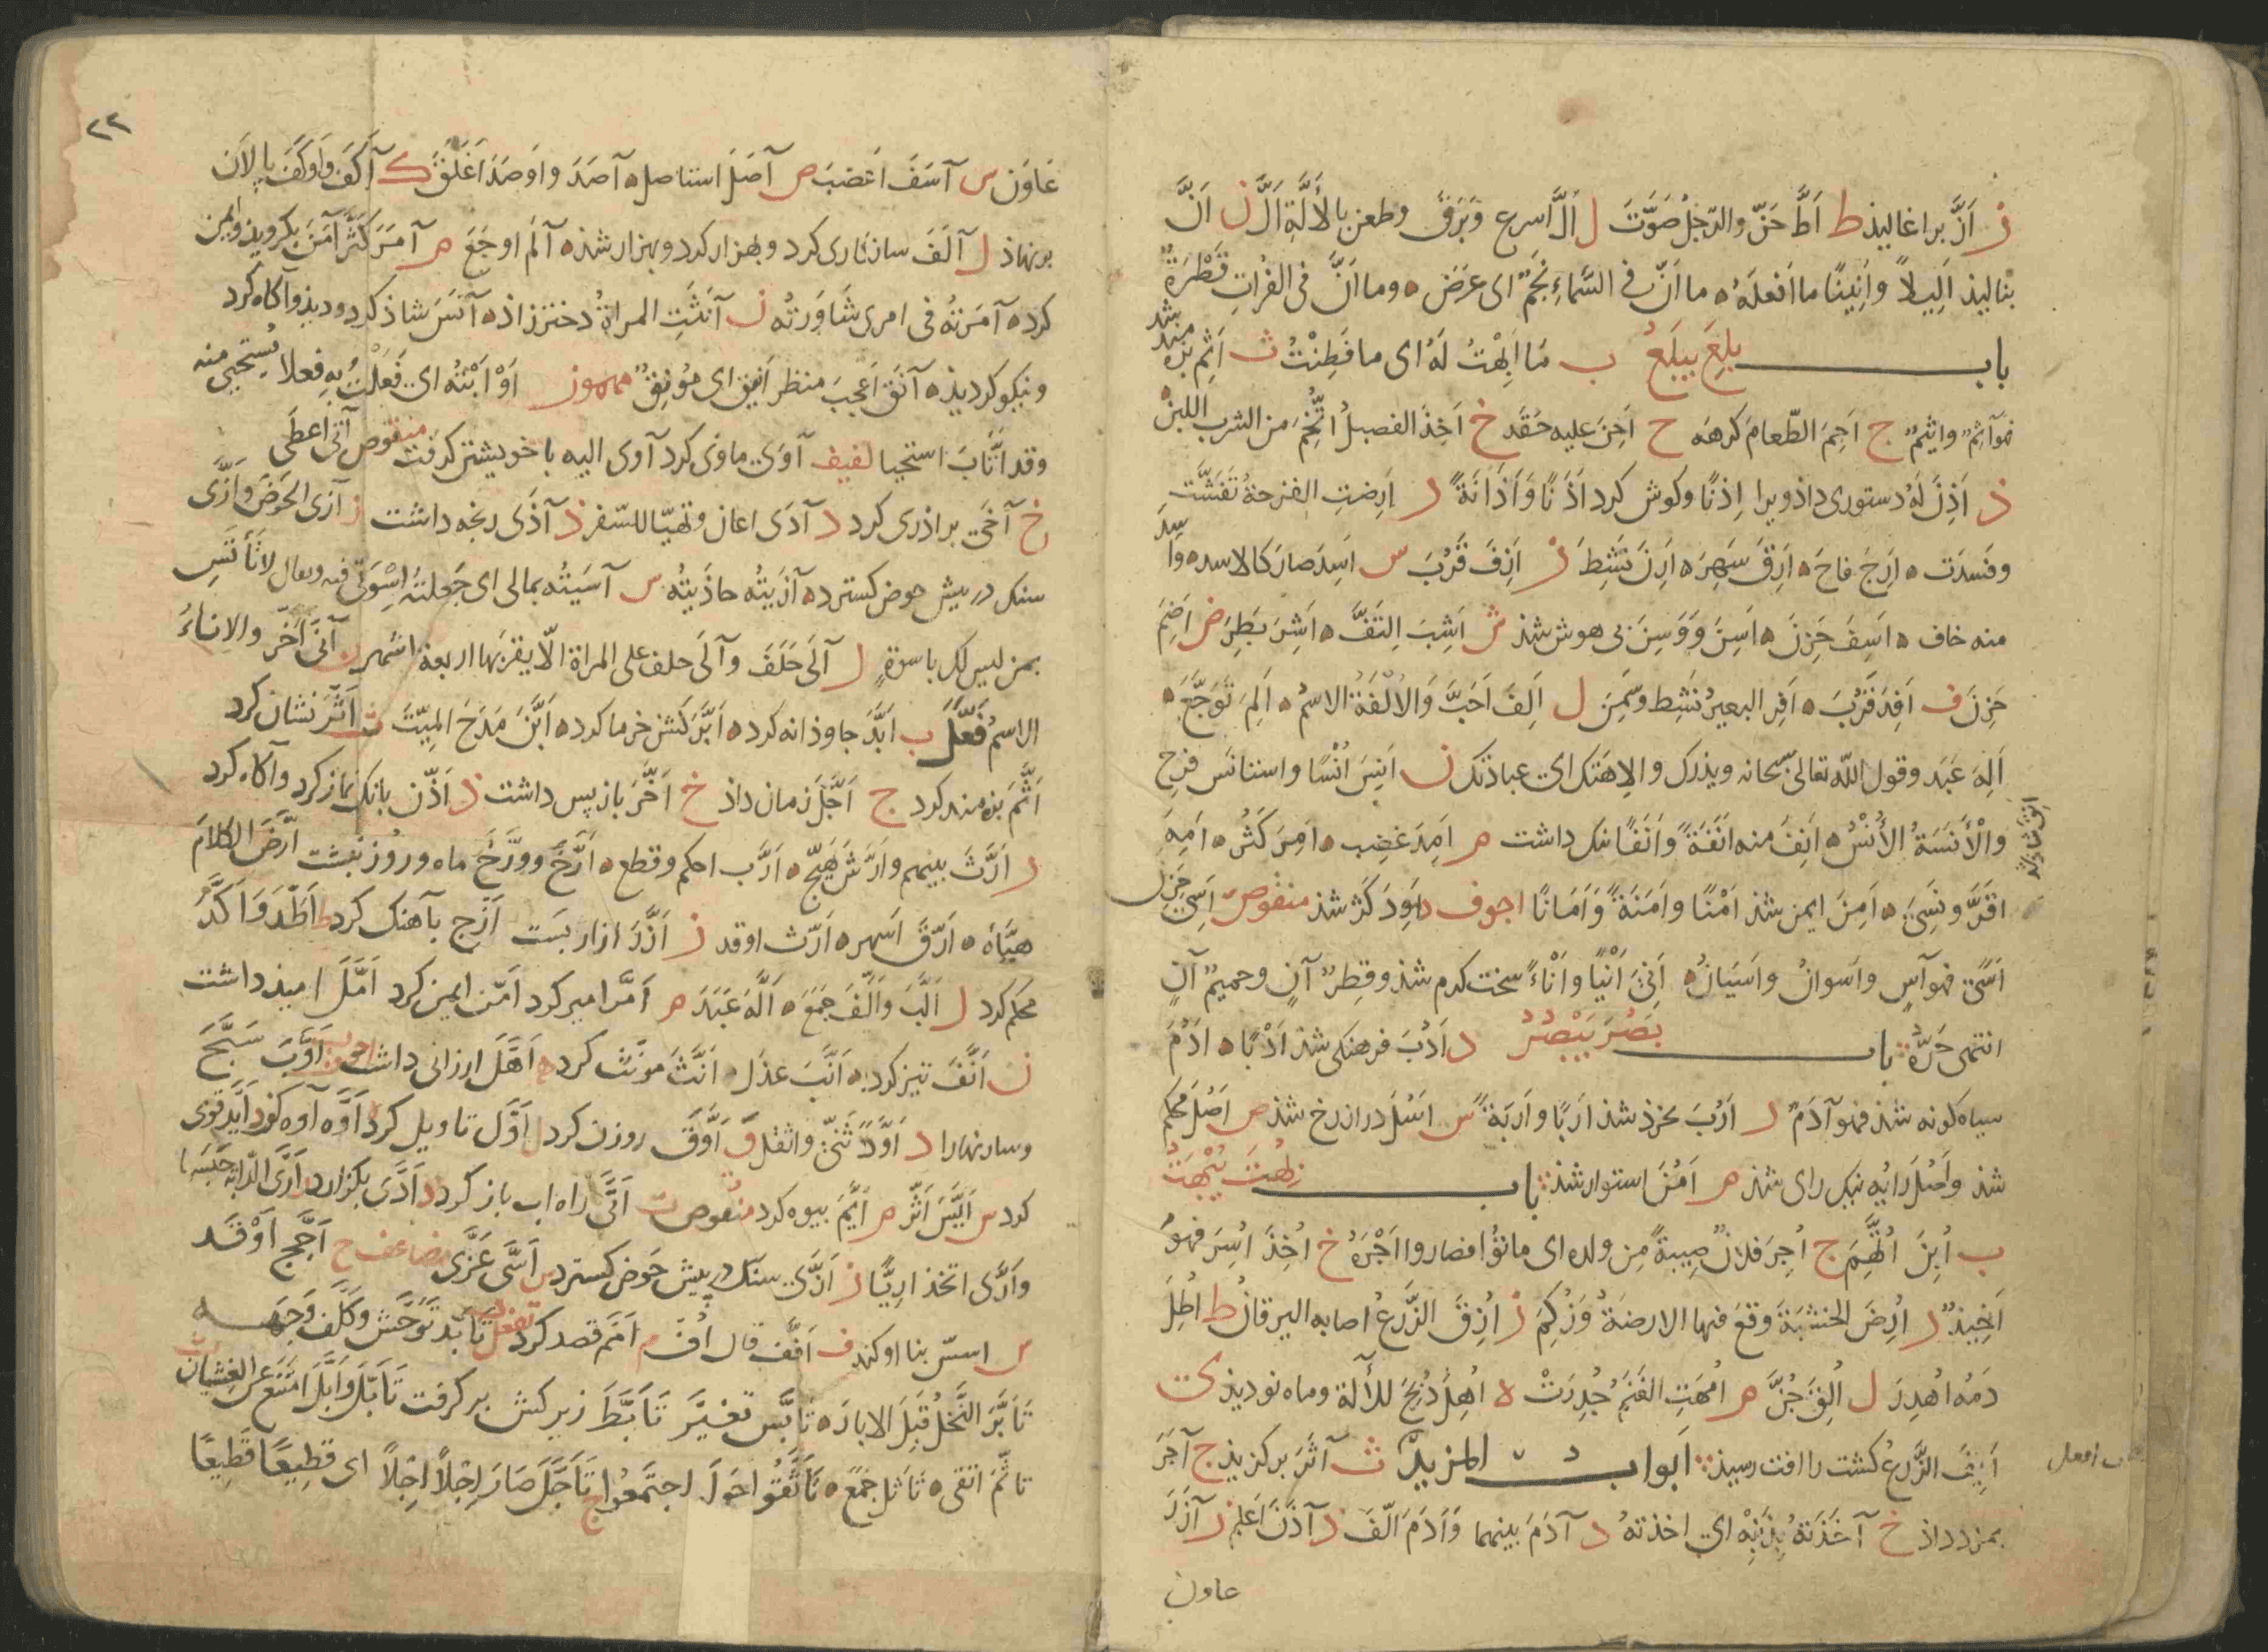 ز اَزَّ برا غاليذ ط اَطَّ حَنَّ والرّجلُ صَوَّتَ ل اَلَّ اسرع وَبَرَقَ وطعن بالأَلَّةِ اَلَّ ن اَنَّ
بناليذ اَلِيلاً واَنِينًا ما افعلهُ ما اَنّ فى السّماءِ نجَمٌ اى عرَضَ ه وما اَنَّ فى الفُراتِ قَطْرَةٌ
باب بلِعَ يبلَعُ ب مَا اَبِهْتُ لَهُ اى ما فَطِنْتُ ث اَثِم بزه مند شد
فهو آثِمٌ واثيمٌ ج اَجِمَ الطّعامَ كرهَه ح اَحِنَ عليه حَقَد خ اَخِذَ الفصيلُ اتُّخِمَ من الشرب اللبن
ذ اَذِنَ لَهُ دستورى داذ ويرا اِذنًا وكوش كرد اَذَنًا وَاَذَانَةً ر اَرِضتِ القرحةُ تَفَشَّت
وفَسدَت ه اَرِجَ فاحَ ه اَرِقَ سَهِرَ ه اَرِنَ نَشِطَ ز اَزِفَ قَرُبَ س اَسِدَ صارَ كالاسد ه واَسِدَ
منه خاف ه اَسِفَ حَزِنَ ه اَسِنَ وَوَسِنَ بى هوش شذ ش اَشِبَ اِلتَفَّ ه اَشِرَ بَطِرَ ض اَضِمَ
حَزِنَ ف اَفِدَ قَرُبَ ه اَفِر البعيرُ نَشِط وسَمِنَ ل اَلِفَ اَحَبَّ وَالاُلْفَةُ الاسمُ ه اَلِمَ تَوَجَّعَ ه
اَلِهَ عَبَد وقول اللّه تعالى سبحانه ويذرك والاهَتَك اى عبادتك ن اَنِسَ اُنْسًا واستانَس فرِح
والْأَنَسَةُ الأُنْسُ ه اَنِفَ منه اَنَفَةً وَاَنَفًا ننك داشت م اَمِدَ غضِب ه اَمِرَ كَثُر ه اَمِهَ
اقَرَّ ونسَى ه اَمِنَ ايمن شذ اَمْنًا واَمَنَةً وَاَمَانًا اجوف د اَوِدَ كَژ شذ منقوص اَسِىَ حَزِنَ
اَسًى فهو آسٍ واَسوانُ واَسيَانُ ه اَنِىَ اَنْيًا واَنْاءً سخت كرم شذ وقِطرٌ آنٍ وحميمٌ آنٍ
انتهى حَرّهُ باب بَصُرَ يَبْصُرُ د اَدُبَ فرهنكى شذ اَدْبًا ه ادُمَ
سياه كونه شذ فهو آدَمُ ر اَرُبَ بخرذ شذ اَربًا واَربَةً س اَسُلَ دراز رخ شذ ص اَصُلَ محكم
شذ واَصُلَ رايُه نيك راى شذ م اَمُنَ استوار شذ باب بُهِتَ يُبْهَتُ
ب اُبِنَ اُتُّهِمَ ج اُجِرَ فلانٌ صِبيةً مِن ولده اى ماتوُا فصاروا اَجْرَهُ خ اُخِذَ اُسِرَ فهُوَ
اَخِيذٌ ر اُرِضَ الخشبَةُ وَقعَ فيها الارضةُ وَزُكِمَ ز اُزِقَ الزَّرعُ اصابه اليرقانُ ط اُطِلَ
دَمُه اُهدِرَ ل اُلِقَ جُنَّ م اُمِهَتِ الغَنَمُ جُدِرَتْ ه اُهِلَّ ذُبِحَ للألهة وماه نو ديذ ى
اُيِفَ الزَّرعُ كشت را افت رسيذ ابواب المزيدِ ث آثَرَ بركزيذ ج آجَرَ
بمزد داذ خ آخَذَتهُ بِذَنْبِهْ اى اخذتهُ د آدَمَ بينهما وَاَدَمَ الّفَ ذ آذَنَ اَعلم ز آزَرَ
عاون
باب افعل
٢٢
عَاوَن س آسَفَ اَغضبَ ص آصَلَ استاصل ه آصَدَ واَوصَدَ اَغلَقَ ك آكَفَ وَاَوكَفَ پالان
برنهاذ ل آلَفَ سازكارى كرد وبهزار كرد وبهزار شذ ه آلم اوجَعَ م آمَرَ كَثَّرَ آمَنَ بكرويذ وايمن
كرد ه آمَرتهُ فى امرى شَاوَرتُه ن آنثَتِ المراةُ دختر زاذ ه آنَسَ شاذ كرد وديذ وآكاه كرد
ونيكو كرديذ ه آنَقَ اَعجَبَ منظر اَنيق اى مُونِقٌ مهموز اَوْاَبْتُه اى فَعَلْتُ به فِعلا يُستَحيى منه
وقد اتَّابَ استحيا لفيف آوَى ماوى كرد آوى اليه با خويشتن كرفت منقوص آتى اعطَى
خ آخَى براذرى كرد د آدَى اعان وتهيّا للسّفر ذ آذَى رنجه داشت ز آزى الحَوضَ وَاَزَّى
سنك در پيش حوض كسترد ه آزَيتُه حاذَيتُه س آسَيتُه بمالى اى جَعلتهُ اِسْوَتى فيه ويقال لا تَأتَسِ
بمن ليس لك باسوةٍ ل آلَى حَلَفَ وآلَى حلف على المراة الّا يقربَها اربعة اشهر ن آنَى اَخّرَ والانَاءُ
الاسمُ فَعَّلَ ب ابَّدَ جاوذانه كرد ه اَبَّرَ كَشن خرما كرد ه اَبَّنَ مَدَحَ المِيّتَ ث اَثَّرَ نشان كرد
اَثَّمَ بزه مند كرد ج اَجَّلَ زمان داذ خ اَخَّرَ باز پس داشت ذ اَذّن بانك نماز كرد وآكاه كرد
ر اَرَّثَ بينهم واَرَّشَ هَيَّج ه اَرَّب احكم وقطع ه اَرَّخَ وورَّخَ ماه وروز نبشت اَرَّضَ الكلامَ
هيَّاهُ ه اَرّقَ اَسهر ه اَرّث اوقد ز اَزَّرَ ازار بَست اَزَج بآهنك كرد ط اَطَّدَ وَاَكَّدَ
محكم كرد ل اَلَّبَ وَاَلَّفَ جمَعَ ه اَلَّهَ عَبَد م اَمَّر امير كرد اَمّن ايمن كرد اَمَّلَ اميذ داشت
ن اَنَّفَ تيز كرد ه اَنَّبَ عذل ه اَنَّثَ مونّث كرد ه اَهَّلَ ارزانى داشت اجوف ب اَوَّبَ سَبَّحَ
وسار نهارا د اَوَّدَ ثَنىّ واثقل ق اَوَّقَ روزن كرد ل اَوَّل تاويل كرد ه اَوَّه آوه كرد اَيَّد قوى
كرد س اَيَّسَ اَثّر م اَيَّمَ بيوه كرد منقوص ت اَتَّى راه اب باز كرد د اَدَّى بكزارد ر اَرَّى الدّابةَ حَبَسَها
واَرَّى اتخذ اريًّا ز اَزَّى سنك در پيش حَوض كسترد س اَسَّى عَزَّى مضاعف ج اَجّج اَوْقَد
س اسسّ بنا اوكند ف اَفَّفَ قال اُفّ م امَّم قصد كرد تفعل ب تَابّد تَوَحَّش وكَلَّفَ وَجهُه
تَابَّرَ النَّخلُ قَبِلَ الاِبارَ ه تابَّس تغيَّر تَابَّطَ زير كش بر كرفت تَابّلَ وَاَبَّلَ امتَنَع عن الغِشيان ث
تاثّمَ اتّقى ه تَاثّل جَمَعَ ه تَاثّفُوا حَولَ اجتَمَعُوا ج تَاَجَّلَ صَارَ اِجْلاً اِجْلاً اى قطِيعًا قطِيعًا